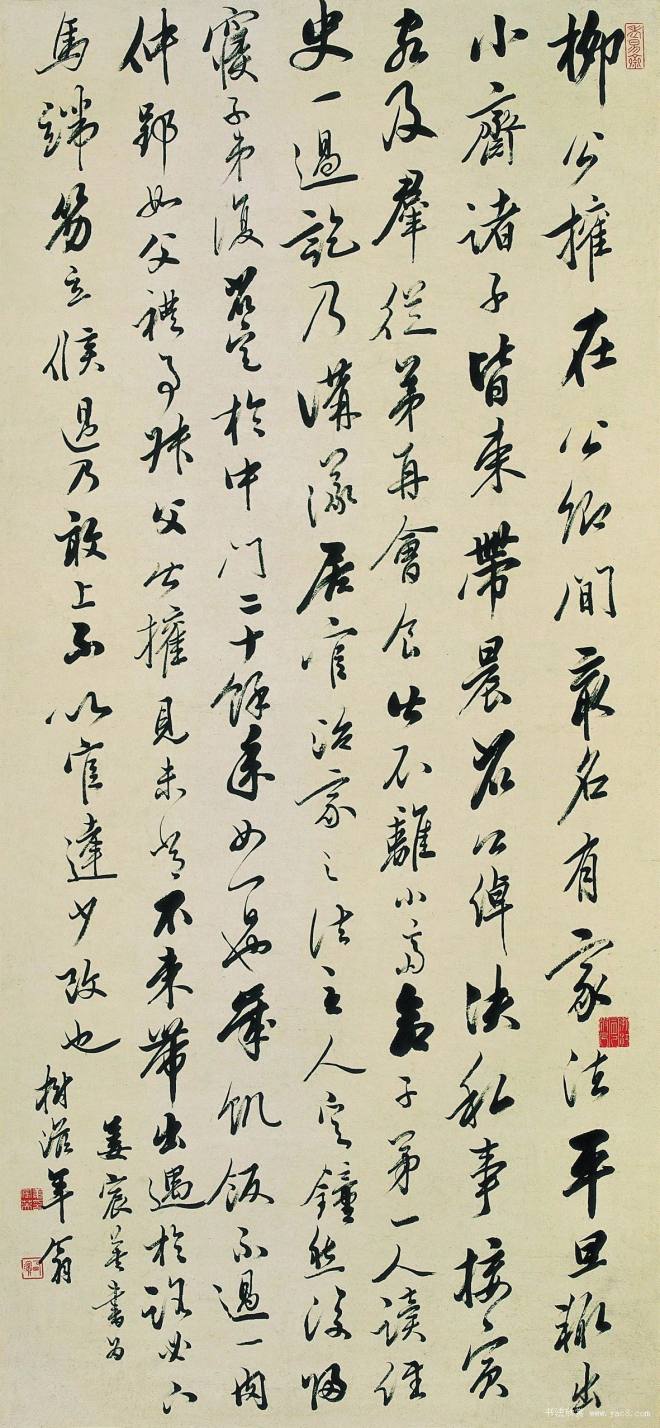 柳公權在公卿間最名有家法平旦輒出
小齋諸子皆束帶晨省公綽決私事接賓
客及羣從弟再會食皆不離小齋命子弟一人讀經
史一過訖乃講議居官治家之法至人定鐘然後歸
寢子弟復昏定於中門二十餘年如一日也歲飢飯不過一肉
仲郢如父禮事叔父公權見未嘗不束帶出遇於路必下
馬端笏立候過乃敢上不以官達少改也
姜宸英書為
樹滋年翁
书法欣赏 www.yac8.com